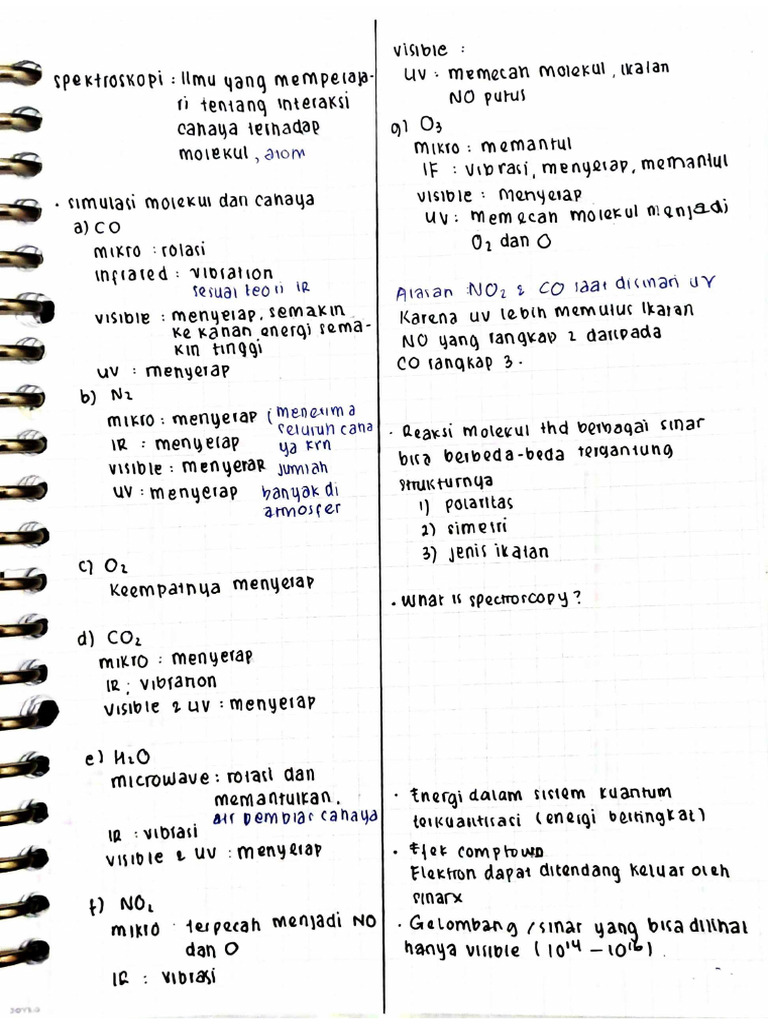 spektroskopi : Ilmu yang mempelaja-
ri tentang interaksi
cahaya terhadap
molekul, atom
• simulasi molekul dan cahaya
a) CO
mikro : rotasi
Infrared : vibration
sesuai teori IR
visible : menyerap, semakin
ke kanan energi sema-
kin tinggi
UV : menyerap
b) N2
mikro : menyerap (menerima
seluruh caha
IR : menyerap ya krn
visible : menyerap jumlah
UV : menyerap banyak di
atmosfer
c) O2
Keempatnya menyerap
d) CO2
mikro : menyerap
IR : vibration
visible & UV : menyerap
e) H2O
microwave : rotasi dan
memantulkan.
air pembias cahaya
IR : vibrasi
visible & UV : menyerap
f) NO2
mikro : terpecah menjadi NO
dan O
IR : vibrasi
visible :
UV : memecah molekul, ikatan
NO putus
g) O3
mikro : memantul
IF : vibrasi, menyerap, memantul
visible : menyerap
UV : memecah molekul menjadi
O2 dan O
Alasan : NO2 & CO saat disinari UV
Karena UV lebih memutus ikatan
NO yang rangkap 2 daripada
CO rangkap 3.
• Reaksi molekul thd berbagai sinar
bisa berbeda-beda tergantung
strukturnya
1) polaritas
2) simetri
3) jenis ikatan
• What is spectroscopy ?
• Energi dalam sistem kuantum
terkuantisasi (energi bertingkat)
• Efek comptown
Elektron dapat ditendang keluar oleh
sinarx
• Gelombang / sinar yang bisa dilihat
hanya visible (10^14 – 10^16)